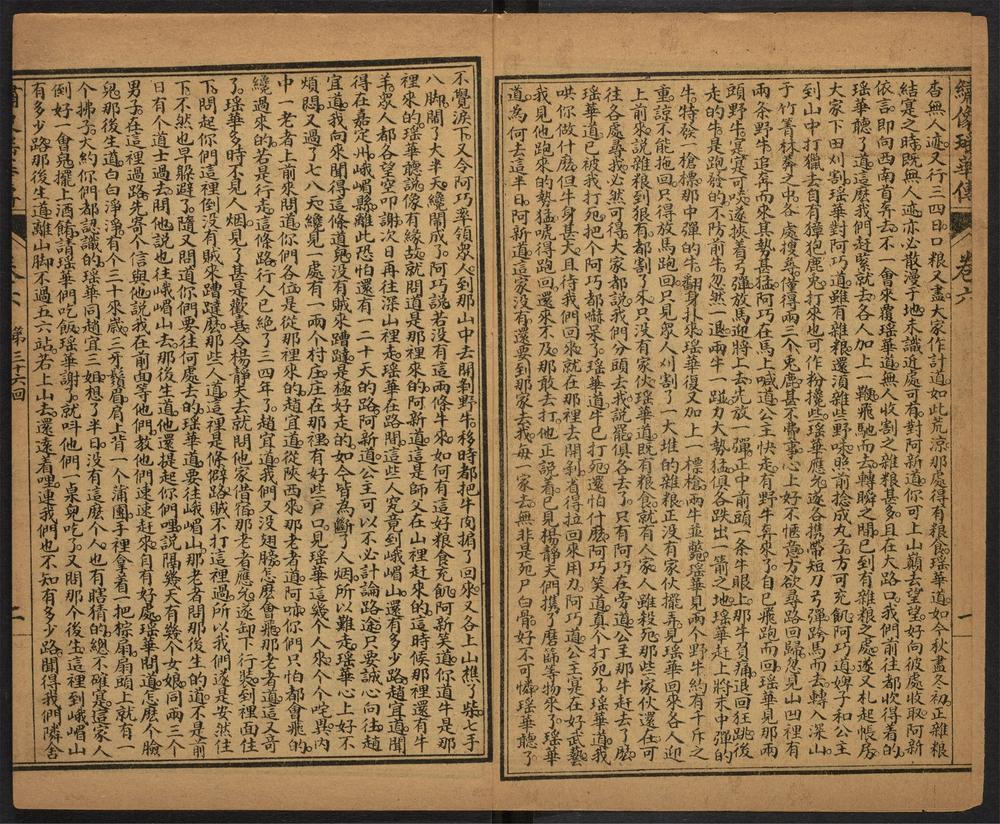 繡像瑤華傳 卷六 一
杳無人迹又行三四日口粮又盡大家作計道如此荒涼那處得有粮食瑤華道如今狄盡冬初正雜粮
結寔之時既無人迹亦必散漫于地未識近處可有對阿新道你可上山巔去望望好向彼處收取阿新
依言即向西南首弄去不一會來覆瑤華道無人收割之雜粮甚多且在大路口我們前往都收得着的
瑤華聽了道這麼我們赶緊就去各人加上一鞭飛馳而去轉瞬之間已到有雜粮之處遂又札起帳房
大家下田刈割瑤華對阿巧道雖有雜粮還湏雜些野味照前捻成丸子方可充飢阿巧道婢子和公主
到山中打獵去自有獐狍鹿兔打來也可作粉攙些瑤華應允遂各携帶短刀弓彈跨馬而去轉入深山
于竹箐林莽之中各處搜尋僅得兩三个兎麂甚不彀事心上好不愜意方欲尋路回歸忽見山凹裡有
兩条野牛追奔而來其勢甚猛阿巧在馬上喊道公主快走有野牛奔來了自已飛跑而回瑤華見那兩
頭野牛寔寔可哾遂挾着弓彈放馬迎將上去先放一彈正中前頭一条牛眼上那牛負痛退回狂跳後
走的牛是跑發的不防前牛忽然一退兩牛一踫力大勢猛俱各跌出一箭之地瑤華赶上將未中彈的
牛特發一槍標那中彈的牛翻身扑來瑤華復又加上一標槍兩牛並斃瑤華見兩个野牛約有千斤之
重諒不能拖回只得放馬跑回只見眾人刈割了一大堆的雜粮正沒有家伙擺弄見瑤華回來各人迎
上前來說雜粮到狠有都割了來只沒有家伙瑤華道既有粮食就有人家人雖殺死那些家伙還在可
往各處尋我必然可得大家都說我們分頭去我說罷俱各去了只有阿巧在旁道公主那牛赶去了麽
瑤華道已被我打死把个阿巧都嚇呆了瑤華道牛已打死還怕什麼阿巧笑道真个打死了瑤華道我
哄你做什麼但牛身甚大且待我們回來就在那裡去開剥省得拉回來用刀阿巧道公主寔在好武藝
我見他跑來的勢猛唬得跑回還來不及那敢去打他正說着已見楊靜夫們携了磨篩等物來了瑤華
道為何去這半日阿新道這家沒有還要到那家去我每一家去無非是死尸白骨好不可憐瑤華聽了
不覺淚下又令阿巧率領眾人到那山中去開剥野牛移時都把牛肉揹了回來又各上山樵了柴七手
八脚鬧了大半天纔鬧成了阿巧說若沒有這兩條牛來如何有這好粮食充飢阿新笑道你道牛是那
裡來的瑤華聽說像有緣故就問道是那裡來的阿新道這是師父在山裡赶來的這時候那裡還有牛
羊眾人都各望空叩謝次日再往深山裡走瑤華在路問這些人究竟到峨嵋山還有多少路趙宜道聞
得在嘉定州峨嵋縣離此恐怕還有一二十天的路阿新道公主可以不必計論路途只要誠心向往趙
宜道我向來聞得這條道兒沒有賊來蹧躂是極好走的如今皆為斷了人烟所以難走瑤華心上好不
煩悶又過了七八天纔見一處有一兩个村庄庄在那裡有好些戸口見瑤華這幾个人來个个咤異內
中一老者上前來問道你們各位是從那裡來的趙宜道從陝西來那老者道阿㖿你們只怕都會飛的
纔過來的若是行走這條路行人已絕了三四年了趙宜道我們又沒翅膀怎麼會飛那老者道這又奇
了瑤華多時不見人烟見了甚是歡喜令楊靜夫去就問他家借宿那老者應允遂卸下行裝到裡面住
下問起你們這裡倒沒有賊來蹧躂麼那些人道這裡是條僻路賊不打這裡過所以我們還是安然住
下不然也早躲避了隨又問道你們要往何處去的瑤華道要往峨嵋山那老者問那後生的道不是前
日有个道士過去問他說也往峨嵋山去那後生道他還提起你們哩說隔幾天有幾个女娘同兩三个
男子在這裡過路先寄个信與他說我在前面等他們教他們速速赶來自有好處瑤華問道怎麽个臉
兒那後生道白白淨淨有个三十來歲三牙鬚眉肩上背一个蒲團手裡拿着一把棕扇扇頭上就有一
个拂子大約你們都認識的瑤華同趙宜三姐想了半日沒有這麽个人也有瞎猜的總不確寔這家人
倒好一會兒擺上酒餚請瑤華們吃飯瑤華謝了就呌他們一桌兒吃了又問那个後生這裡到峨嵋山
有多少路那後生道離山脚不過五六站若上山去還遠着哩連我們也不知有多少路聞得我們隣舍
卷六 第三十六回 二